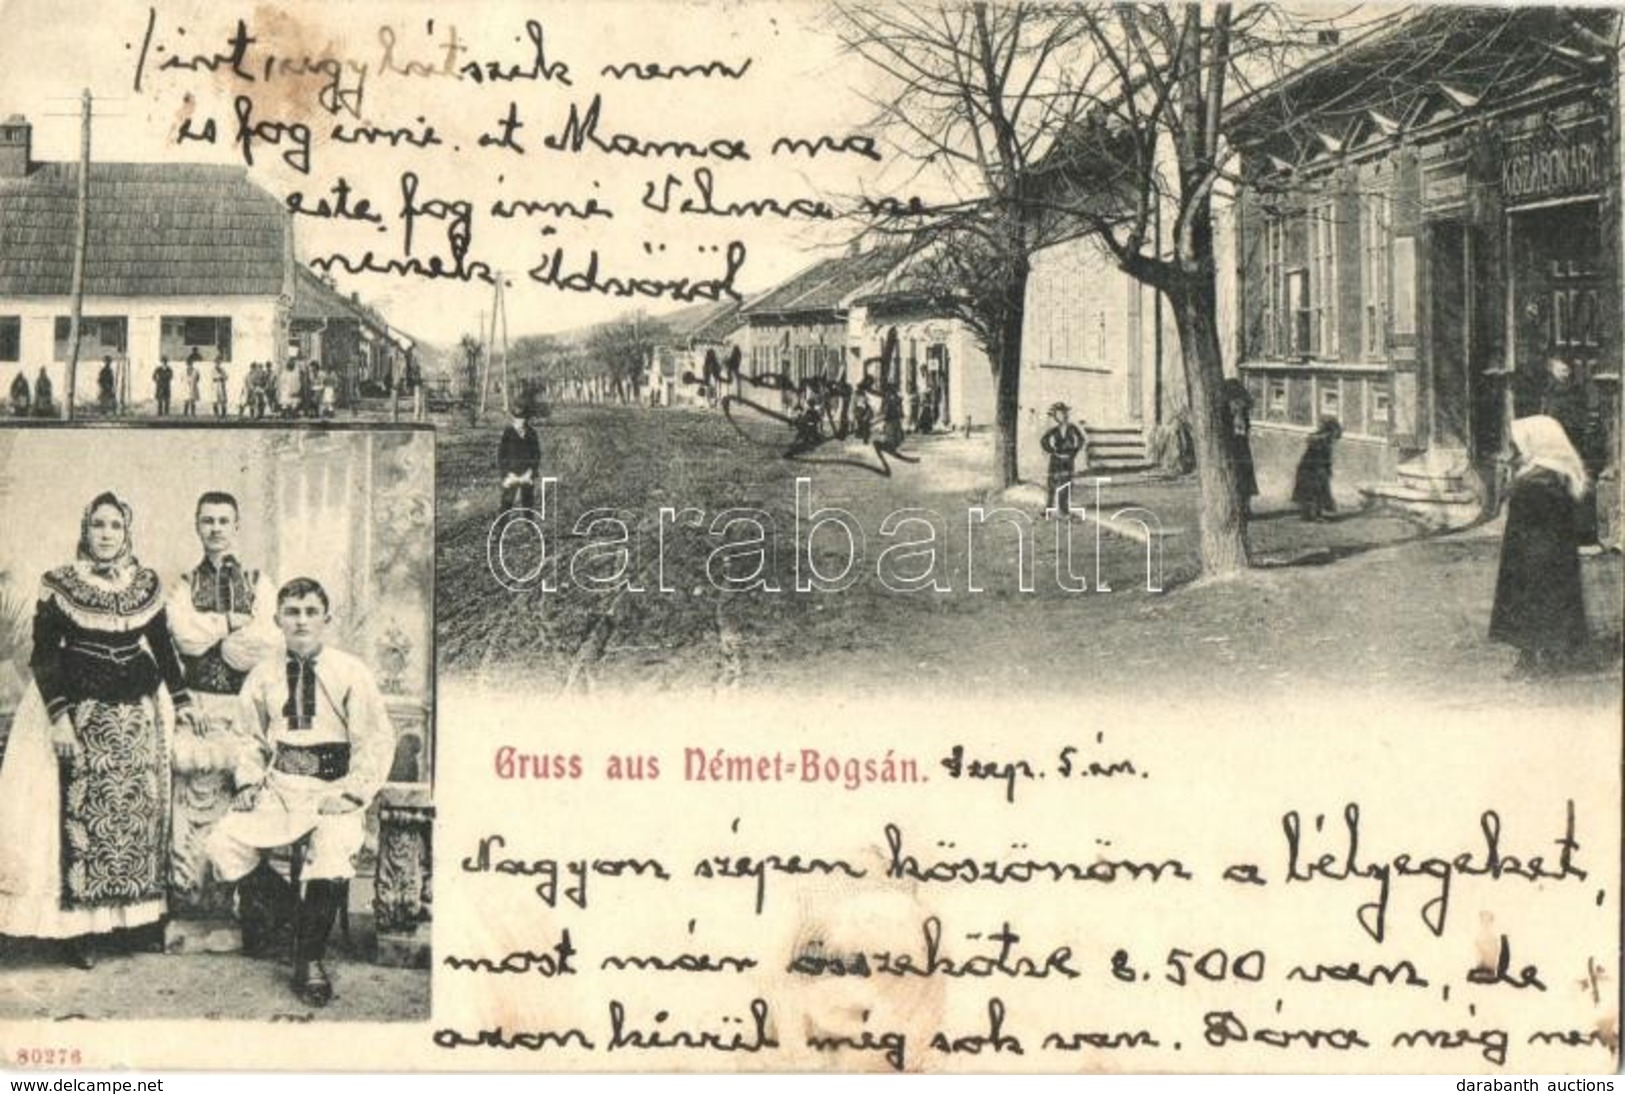 ./ irt, úgy látszik nem
is fog irni. At Mama ma
este fog irni Velma né
ninek. Üdvözöl
KISZABO KÁROLY
darabanth
Gruss aus Német-Bogsán. Szep. 5.-én.
Nagyon szépen köszönöm a bélyegeket,
most már összekötve 8.500 van, de
azon kívül még sok van. Dóra még nem
80276
www.delcampe.net
darabanth auctions